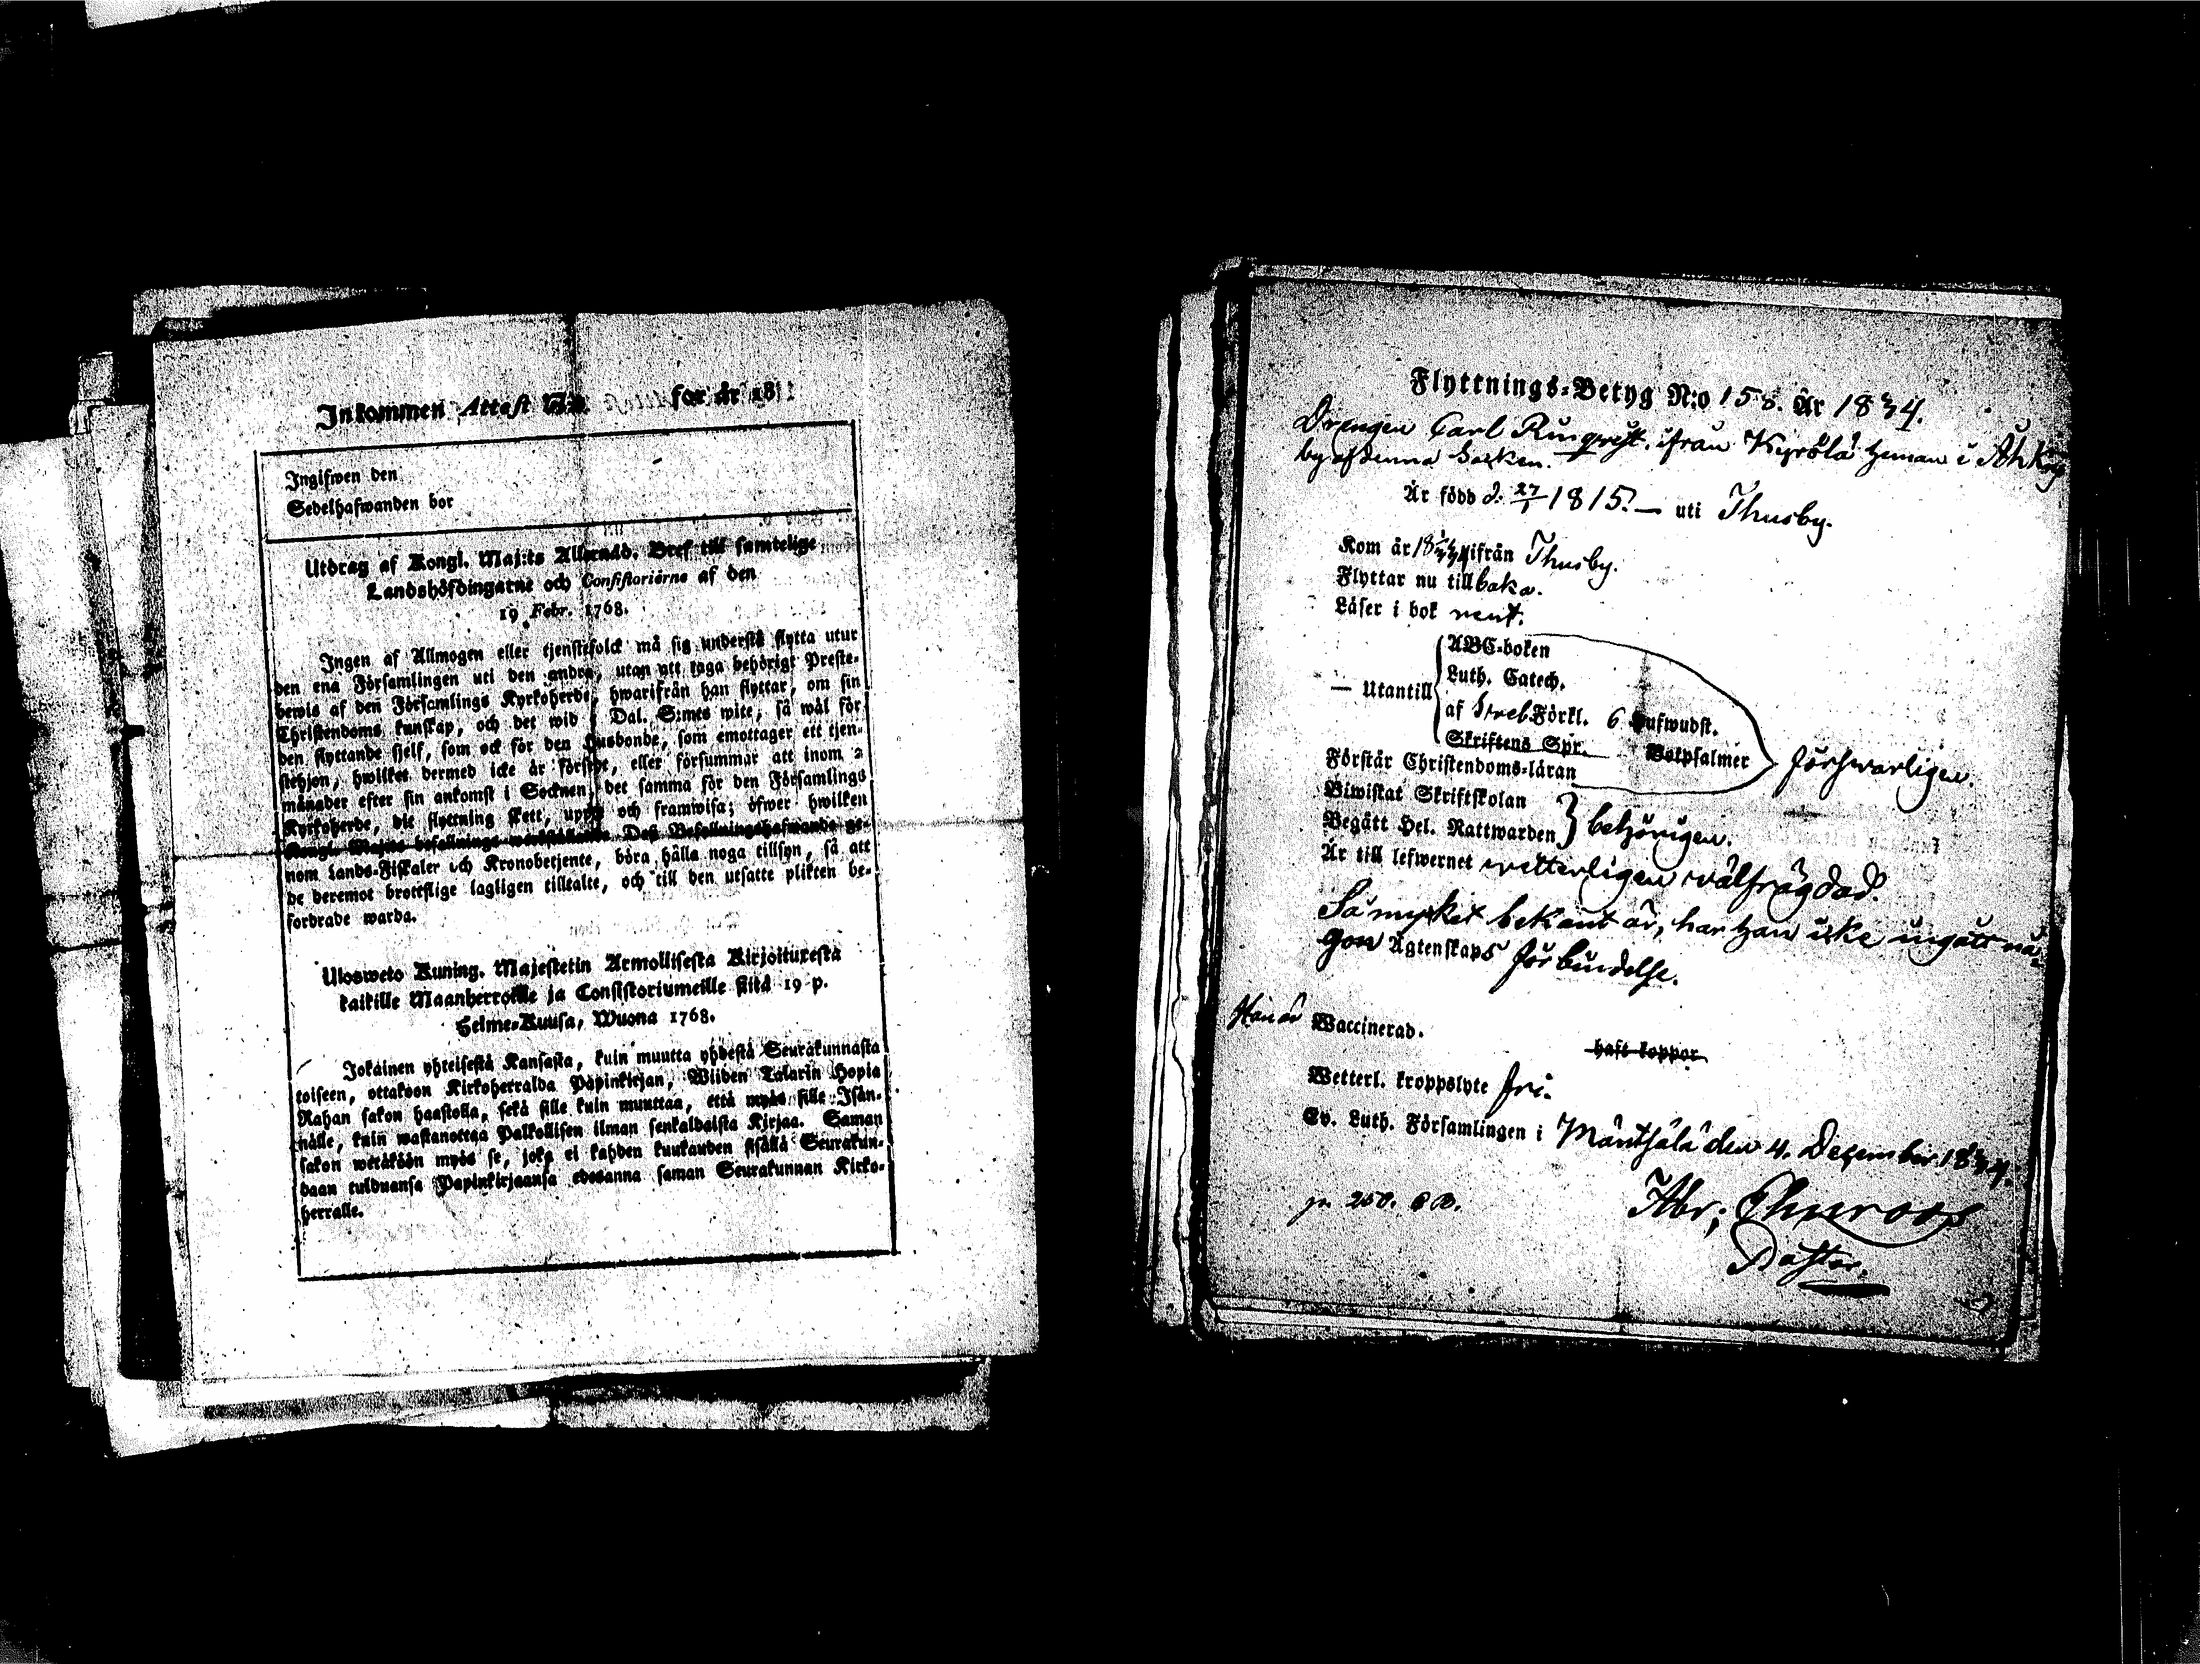 Inkommen Attest N:o för år 18
Ingifwen den
Sedelhafwanden bor
Utdrag af Kongl. Maj:ts Allernåd. Bref till samtelige
Landshöfdingarne och Consistorierne af den
19 Febr. 1768.
Ingen af Allmogen eller tjenstefolck må sig understå flytta utur
den ena Församlingen uti den andra, utan att taga behörigt Preste-
bewis af den Församlings Kyrkoherde, hwarifrån han flyttar, om sin
Christendoms kunskap, och det wid 5 Dal. S:mts wite, så wäl för
den flyttande sjelf, som ock för den Husbonde, som emottager ett tjen-
stehjon, hwilket dermed icke är försedt, eller försummar att inom 2
månader efter sin ankomst i Socknen, det samma för den Församlings
Kyrkoherde, dit flyttning skett, uppte och framwisa; öfwer hwilken
Kongl. Maj:ts befallnings werkställande Deß Befallningshafwande ge-
nom Lands-Fiskaler och Kronobetjente, böra hålla noga tillsyn, så att
de deremot brottslige lagligen tilltalte, och till den utsatte plikten be-
fordrade warda.
Ulosweto Kuning. Majestetin Armollisesta Kirjoituresta
kaikille Maanherroille ja Consistoriumeille siitä 19 p.
Helme-Kuusa, Wuona 1768.
Jokainen yhteisestä Kansasta, kuin muutta yhdestä Seurakunnasta
toiseen, ottakoon Kirkoherralda Papinkirjan, Wiiden Talarin Hopia
Rahan sakon haastolla, sekä sille kuin muuttaa, että myös sille Isän-
nälle, kuin wastanottaa Palkollisen ilman senkaldaista Kirjaa. Saman
sakon wetäköön myös se, joka ei kahden kuukauden sisällä Seurakun-
daan tulduansa Papinkirjaansa edesanna saman Seurakunnan Kirko-
herralle.
Flyttnings-Betyg N:o 158. År 1834.
Drengen Carl Runqvist ifrån Kyrölä heman i
by af denna Socken.
Är född d. 27/1 1815. — uti Thusby.
Kom år 18 ifrån Thusby.
Flyttar nu tillbaka.
Läser i bok rent.
ABC-boken
Luth. Catech.
— Utantill
af Förkl. 6 Hufwudst.
Skriftens Spr. Botpsalmer
Förstår Christendoms-läran försvarligen.
Biwistat Skriftskolan
Begått Hel. Nattwarden behörigen.
Är till lefwernet wetterligen välfrägdad.
Så mycket bekant är, har han icke ingått nå-
gon Ägtenskaps förbindelse.
Han är Waccinerad.
haft koppor
Wetterl. kroppslyte fri.
Ev. Luth. Församlingen i Mäntsälä den 4. December 1834.
250.
Abr; Thuroos
Pastor.